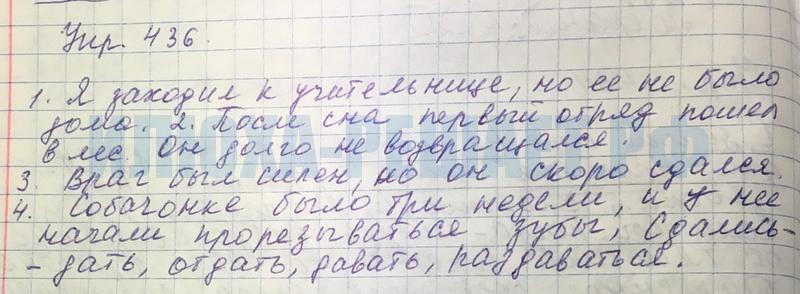 Упр. 436.
1. Я заходил к учительнице, но ее не было
дома. 2. После сна первый отряд пошел
в лес. Он долго не возвращался.
3. Враг был силен, но он скоро сдался.
4. Собачонке было три недели, и у нее
начали прорезываться зубы, Сдались-
- дать, отдать, давать, раздаваться.